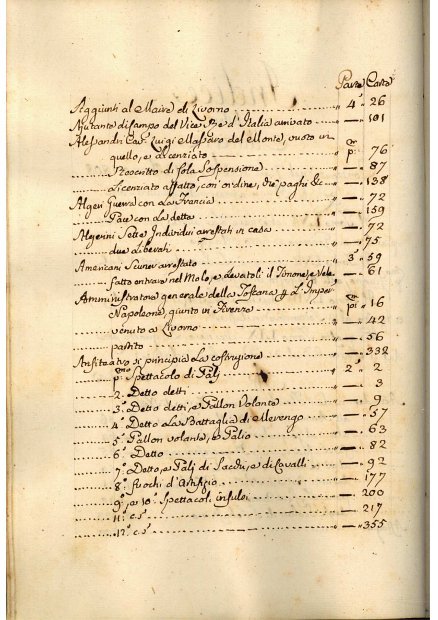 Parte Carte
Aggiunti al Maire di Livorno " 4° " 26
Ajutante di Campo del Vice Re d'Italia arrivato " — " 101
Alessandri Cav. Luigi Massimo del Monte, vuoto in
quello, e Licenziato " pma " 76
Proscritto di sola Sospensione " — " 87
Licenziato affatto, con ordine, che paghi &c " — " 138
Algeri Guerra con La Francia " — " 72
Pace con La detta " — " 159
Algerini Sette Individui arrestati in casa " — " 72
due Liberati " — " 75
Americani Scuner arrestato " 3° " 59
fatto entrare nel Molo, e Levatoli il Timone, e Vele " — " 61
Amministratore generale della Toscana p L'Imper
Napoleone, giunto in Firenze " pma " 16
venuto a Livorno " — " 42
partito " — " 56
Anfiteatro si principia La costruzione " — " 332
pmo Spettacolo di Palj " 2° " 2
2° Detto detti " — " 3
3° Detto detti, e Pallon Volante " — " 9
4° Detto La Battaglia di Merengo " — " 57
5° Pallon volante, e Palio " — " 63
6° Detto " — " 82
7° Detto, e Palj di Sacchi, e di Cavalli " — " 92
8° fuochi d'Artifizio " — " 177
9°, e 10° Spettacoli insulsi " — " 200
11° c.s. " — " 217
12° c.s. " — " 355